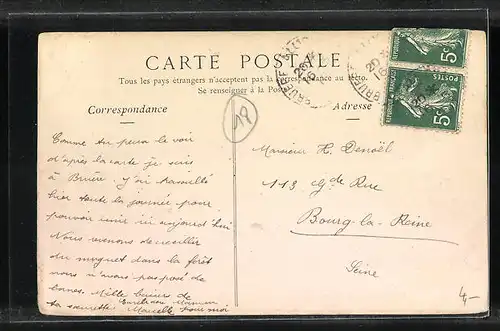 CARTE POSTALE
Tous les pays étrangers n'acceptent pas la correspondance au recto.
Se renseigner à la Poste
Correspondance
Adresse
19
Comme tu peux le voir
d'après la carte je suis
à Bruère. J'ai travaillé
hier toute la journée pour
pouvoir venir ici aujourd'hui
Nous venons de cueillir
du muguet dans la forêt
nous n'avons pas posé de
bones. Mille baisers de
ta soeurette Marcelle
Embrasse Maman
pour moi
Monsieur H. Denoël
113 Gde Rue
Bourg-la-Reine
Seine
4-
REPUBLIQUE FRANÇAISE
POSTES
5c
5c
BRUERE